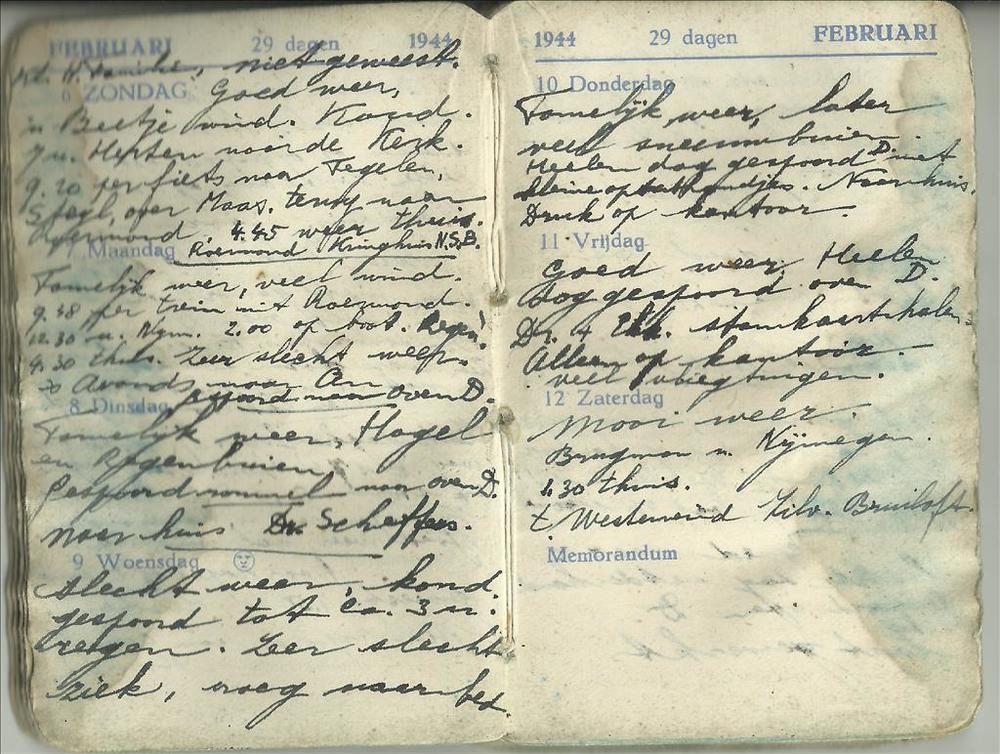 FEBRUARI 29 dagen 1944
niet geweest.
6 ZONDAG Goed weer,
Beetje wind. Koud.
7 u. Herten Kerk.
9.20 per fiets naar Tegelen,
Steyl, over Maas, terug naar
Roermond. 4.45 weer thuis.
7 Maandag Roermond Kringhuis N.S.B.
Tamelijk weer, veel wind.
9.48 per trein uit Roermond.
12.30 u. Nijm. 2.00 op boot. Regen
4.30 thuis. Zeer slecht weer.
Avonds naar
8 Dinsdag gespoord naar over D.
Tamelijk weer, Hagel
en Regenbuien,
Gespoord naar over D.
naar huis Dr. Scheffers.
9 Woensdag
Slecht weer, koud.
gespoord tot ca. 3 u.
regen. Zeer slecht
ziek, vroeg naar bed.
1944 29 dagen FEBRUARI
10 Donderdag
Tamelijk weer, later
veel sneeuwbuien.
Heelen dag gespoord D. met
kleine Naar huis.
Druk op kantoor.
11 Vrijdag
Goed weer, Heelen
dag gespoord over D.
Dr. 4 stamkaart halen.
Alleen op kantoor.
veel vliegtuigen.
12 Zaterdag
Mooi weer.
Brugman n. Nijmegen.
1.30 thuis.
t. Westeneind Zilv. Bruiloft.
Memorandum